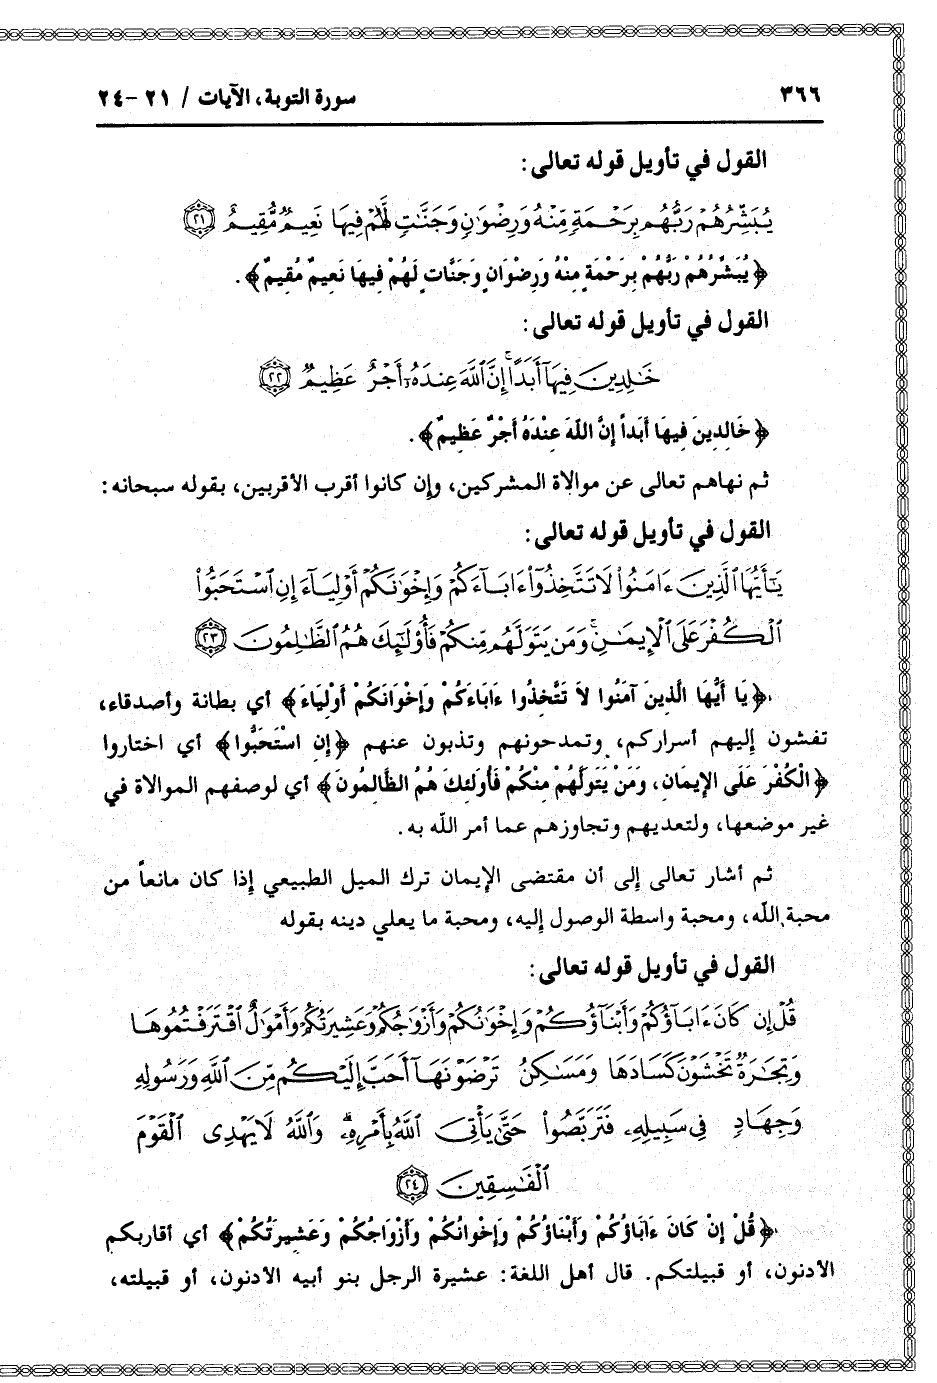 ٣٦٦ سورة التوبة، الآيات / ٢١ -٢٤
القول في تأويل قوله تعالى:
يُبَشِّرُهُمْ رَبُّهُم بِرَحْمَةٍ مِّنْهُ وَرِضْوَٰنٍ وَجَنَّٰتٍ لَّهُمْ فِيهَا نَعِيمٌ مُّقِيمٌ ﴿٢١﴾
﴿يُبَشِّرُهُمْ رَبُّهُمْ بِرَحْمَةٍ مِنْهُ وَرِضْوَانٍ وَجَنَّاتٍ لَهُمْ فِيهَا نَعِيمٌ مُقِيمٌ﴾.
القول في تأويل قوله تعالى:
خَٰلِدِينَ فِيهَآ أَبَدًا ۚ إِنَّ ٱللَّهَ عِندَهُۥٓ أَجْرٌ عَظِيمٌ ﴿٢٢﴾
﴿خَالِدِينَ فِيهَا أَبَداً إِنَّ اللَّهَ عِنْدَهُ أَجْرٌ عَظِيمٌ﴾.
ثم نهاهم تعالى عن موالاة المشركين، وإن كانوا أقرب الأقربين، بقوله سبحانه:
القول في تأويل قوله تعالى:
يَٰٓأَيُّهَا ٱلَّذِينَ ءَامَنُوا۟ لَا تَتَّخِذُوٓا۟ ءَابَآءَكُمْ وَإِخْوَٰنَكُمْ أَوْلِيَآءَ إِنِ ٱسْتَحَبُّوا۟
ٱلْكُفْرَ عَلَى ٱلْإِيمَٰنِ ۚ وَمَن يَتَوَلَّهُم مِّنكُمْ فَأُو۟لَٰٓئِكَ هُمُ ٱلظَّٰلِمُونَ ﴿٢٣﴾
﴿يَا أَيُّهَا الَّذِينَ آمَنُوا لاَ تَتَّخِذُوا ءَابَاءَكُمْ وَإِخْوَانَكُمْ أَوْلِيَاءَ﴾ أي بطانة وأصدقاء،
تفشون إليهم أسراركم، وتمدحونهم وتذبون عنهم ﴿إِنِ اسْتَحَبُّوا﴾ أي اختاروا
﴿الْكُفْرَ عَلَى الإِيمَانِ، وَمَنْ يَتَوَلَّهُمْ مِنْكُمْ فَأُولَئِكَ هُمُ الظَّالِمُونَ﴾ أي لوصفهم الموالاة في
غير موضعها، ولتعديهم وتجاوزهم عما أمر الله به.
ثم أشار تعالى إلى أن مقتضى الإيمان ترك الميل الطبيعي إذا كان مانعاً من
محبة الله، ومحبة واسطة الوصول إليه، ومحبة ما يعلي دينه بقوله
القول في تأويل قوله تعالى:
قُلْ إِن كَانَ ءَابَآؤُكُمْ وَأَبْنَآؤُكُمْ وَإِخْوَٰنُكُمْ وَأَزْوَٰجُكُمْ وَعَشِيرَتُكُمْ وَأَمْوَٰلٌ ٱقْتَرَفْتُمُوهَا
وَتِجَٰرَةٌ تَخْشَوْنَ كَسَادَهَا وَمَسَٰكِنُ تَرْضَوْنَهَآ أَحَبَّ إِلَيْكُم مِّنَ ٱللَّهِ وَرَسُولِهِۦ
وَجِهَادٍ فِى سَبِيلِهِۦ فَتَرَبَّصُوا۟ حَتَّىٰ يَأْتِىَ ٱللَّهُ بِأَمْرِهِۦ ۗ وَٱللَّهُ لَا يَهْدِى ٱلْقَوْمَ
ٱلْفَٰسِقِينَ ﴿٢٤﴾
﴿قُلْ إِنْ كَانَ ءَابَاؤُكُمْ وَأَبْنَاؤُكُمْ وَإِخْوَانُكُمْ وَأَزْوَاجُكُمْ وَعَشِيرَتُكُمْ﴾ أي أقاربكم
الأدنون، أو قبيلتكم. قال أهل اللغة: عشيرة الرجل بنو أبيه الأدنون، أو قبيلته،